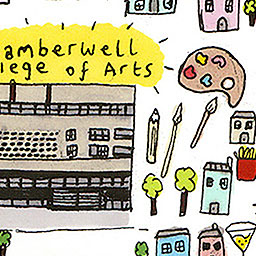 amberwell
lege of Arts